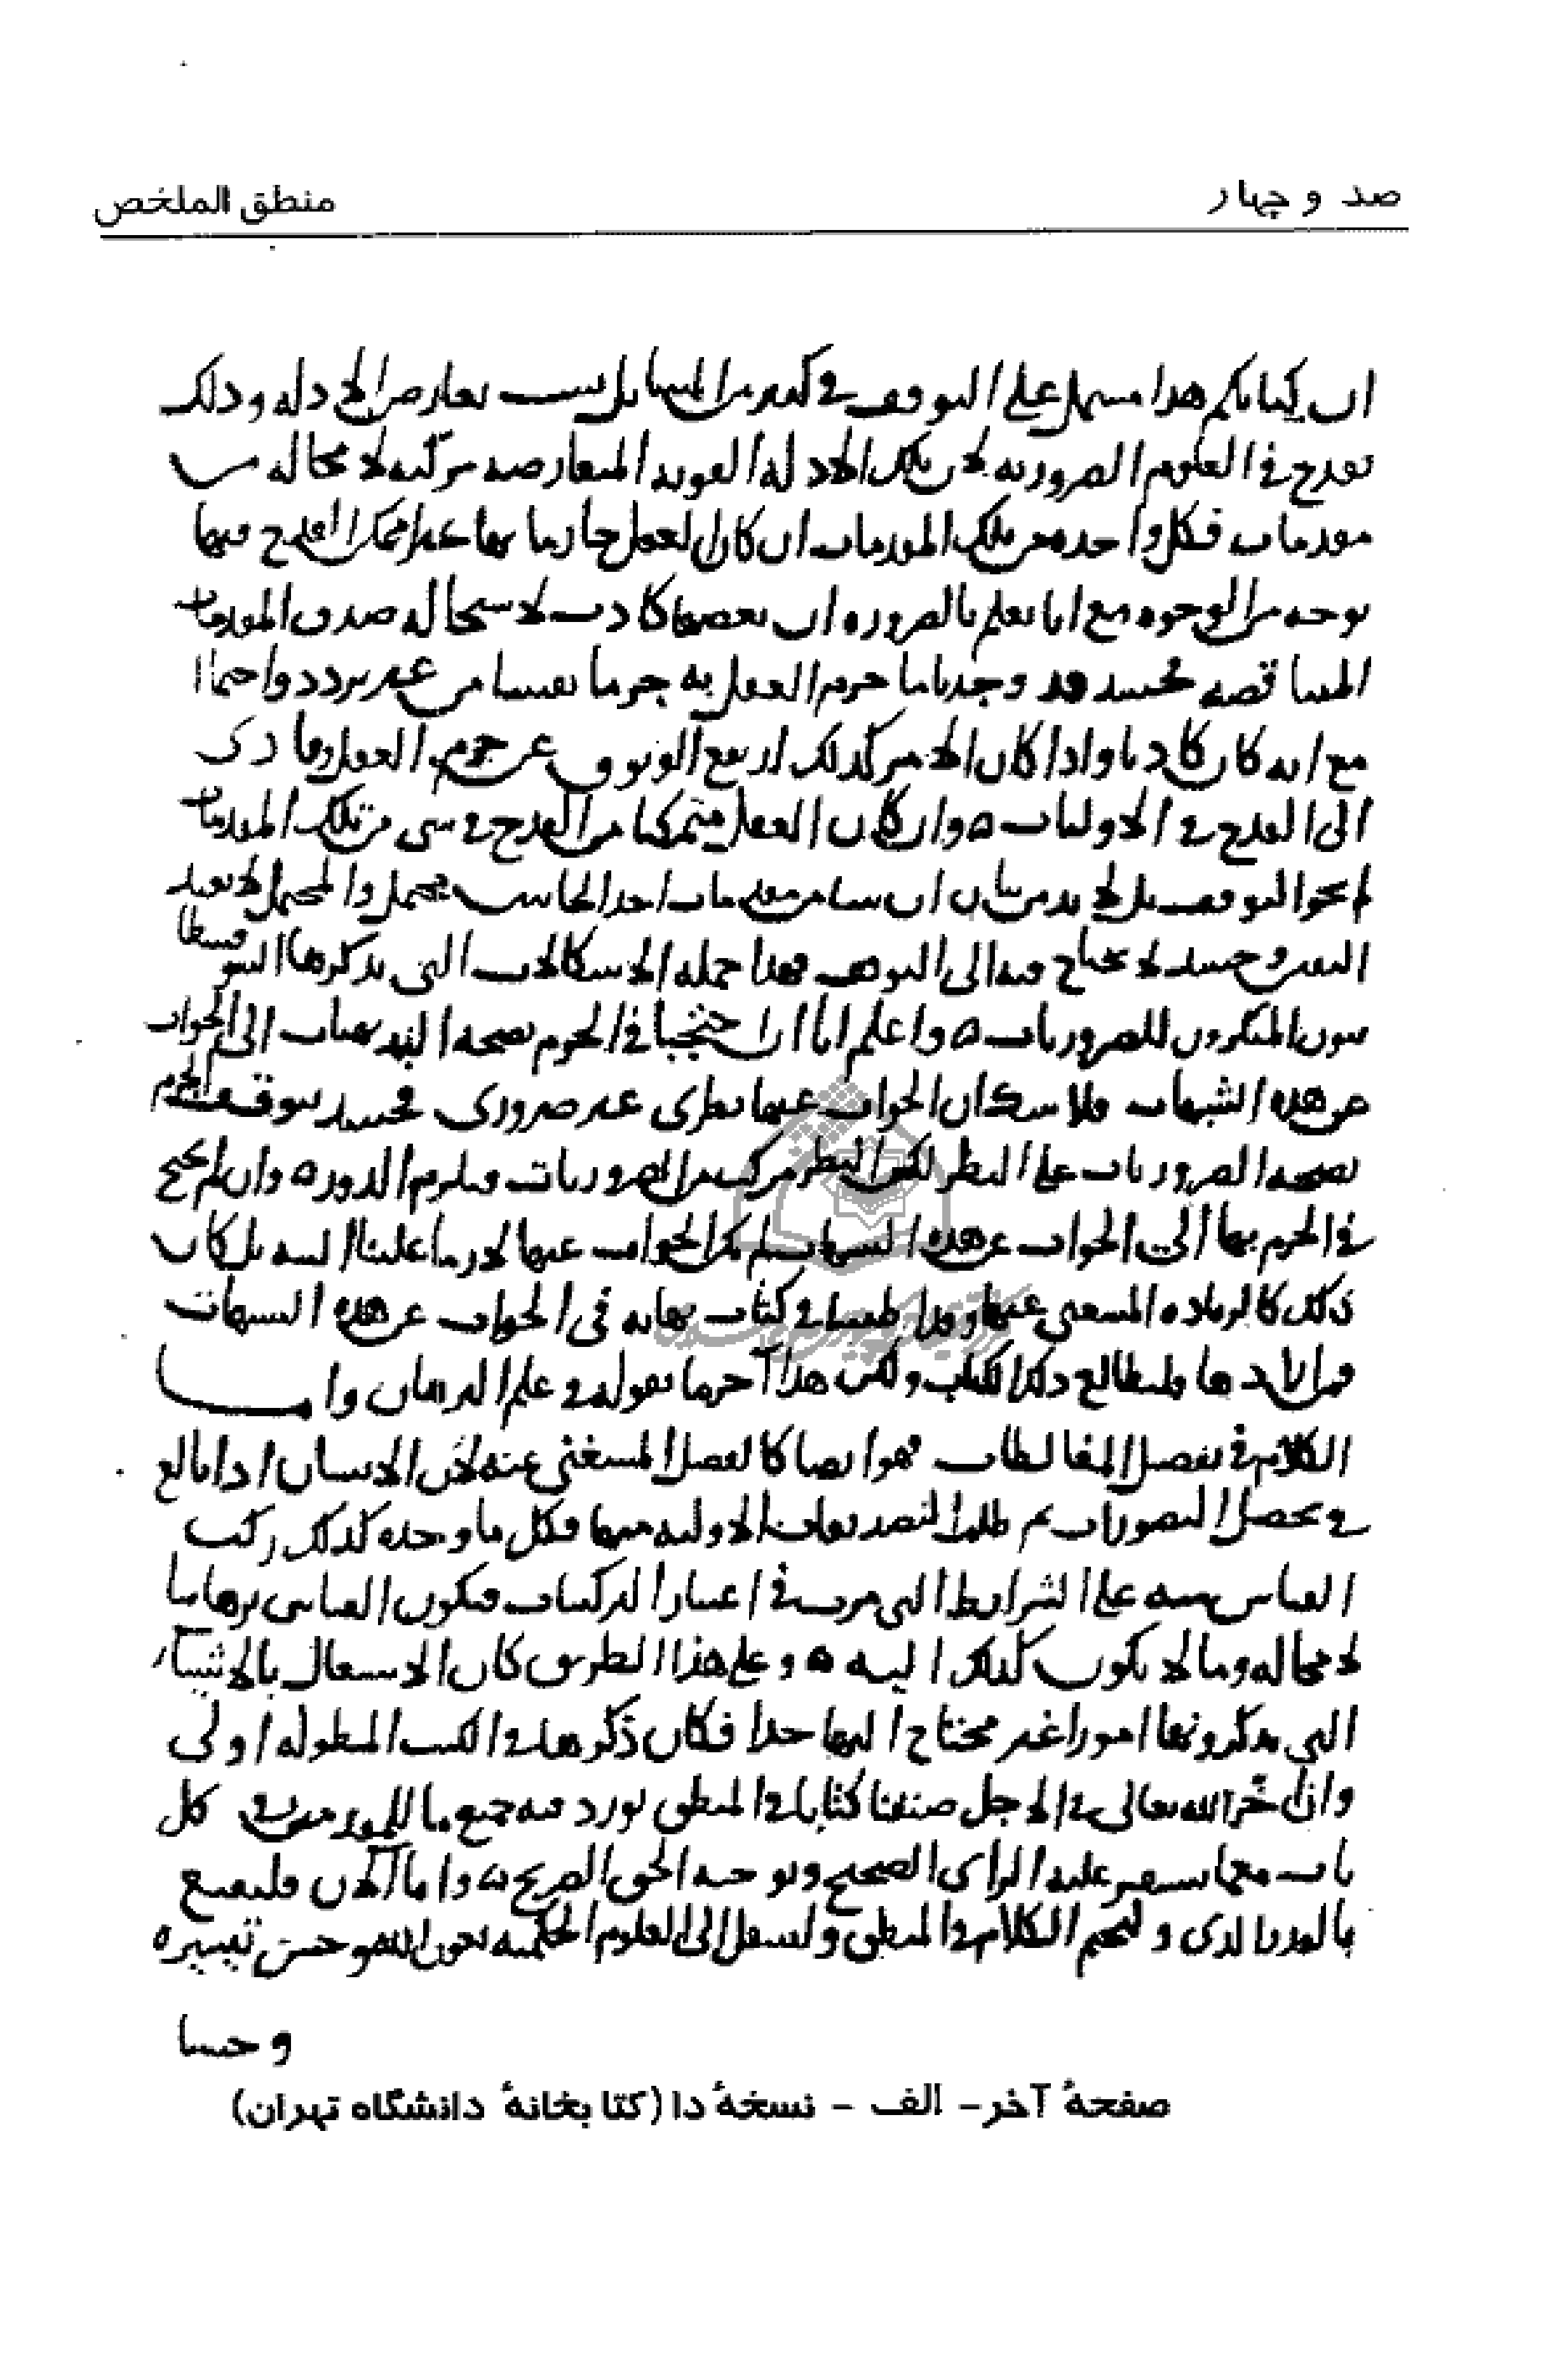 صد و چهار
منطق الملخص
ان كتابكم هذا مشتمل على التوقف فى كثير من المسايل بسبب تعارض الادله وذلك
يقدح فى العلوم الضروريه لان تلك الادله القويه المتعارضه مركبه لا محاله من
مقدمات فكل واحده من تلك المقدمات ان كان العقل جازما بها غير متمكن القدح فيها
بوجه من الوجوه مع انا نعلم بالضروره ان بعضها كاذب لاستحاله صدق المقدمات
المتناقضه فحينئذ قد وجدنا ما جزم العقل به جزما يقينيا من غير تردد واحتمال
مع انه كان كاذبا واذا كان الامر كذلك ارتفع الوثوق عن جزم العقل وما ذكر
الى القدح فى الاوليات ه وان كان العقل متمكنا من القدح فى شى من تلك المقدمات
لم يجز التوقف بل لا بد من بيان ان شيا من مقدمات احد الجانبين محتمل والمحتمل لا يفيد
اليقين وحينئذ لا يحتاج فيه الى التوقف فهذا جمله الاشكالات التى يذكرها السوفسطا
ييون المنكرون للضروريات ه واعلم انا ان احتجنا فى الجزم بصحه البديهيات الى الجواب
عن هذه الشبهات فلا شك ان الجواب عنها نظرى غير ضرورى فحينئذ يتوقف الجزم
بصحه الضروريات على النظر لكن النظر مركب من الضروريات فيلزم الدور ه وان لم نحتج
فى الجزم بها الى الجواب عن هذه الشبهات لم يكن الجواب عنها لازما علينا البته بل كان
ذلك كالزياده المستغنى عنها وقد اطنبنا فى كتاب نهايه فى الجواب عن هذه الشبهات
فمن ارادها فليطالع ذلك الكتاب وليكن هذا آخر ما نقوله فى علم البرهان واما
الكلام فى تفصيل المغالطات فهو ايضا كالفصل المستغنى عنه لان الانسان اذا بالغ
فى تحصيل التصورات ثم طلب التصديقات الاوليه منها فكل ما وجده كذلك ركب
القياس منه على الشرايط التى عرفت فى اعتبار التركيبات فيكون القياس برهانيا
لا محاله وما لا يكون كذلك اليه ه وعلى هذا الطريق كان الاشتغال بالاشيا
التى يذكرونها امورا غير محتاج اليها جدا فكان ذكرها فى الكتب المطوله اولى
وان اخر الله تعالى فى الاجل صنفنا كتابا فى المنطق نورد فيه جميع ما للمتقدمين فى كل
باب مما يستمر عليه الراى الصحيح ويوجبه الحق الصريح ه واما الان فليقنع
بالقدر الذى ولنختم الكلام فى المنطق ولننتقل الى العلوم الحكميه بعون الله وحسن تيسيره
وحسبنا
صفحهٔ آخر - الف - نسخهٔ دا (كتابخانهٔ دانشگاه تهران)